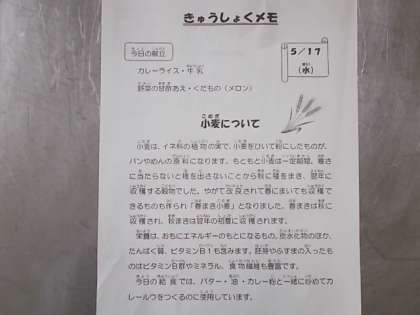 きゅうしょくメモ
今日の献立
5/17
(水)
カレーライス・牛乳
野菜の甘酢あえ・くだもの(メロン)
小麦について
小麦は、イネ科の植物の実で、小麦をひいて粉にしたものが、
パンやめんの原料になります。もともと小麦は一定期間、寒さ
に当たらないと穂を出さないことから秋に種をまき、翌年に
収穫する穀物でした。やがて改良されて春にまいても収穫で
きるものも作られ「春まき小麦」となりました。春まきは秋に
収穫され、秋まきは翌年の初夏に収穫されます。
栄養は、おもにエネルギーのもとになるもの。炭水化物のほか、
たんぱく質、ビタミンB1も含みます。胚芽やふすまの入ったも
のはビタミンB群やミネラル、食物繊維も豊富です。
今日の給食では、バター・油・カレー粉と一緒に炒めてカ
レールウをつくるのに使用しています。